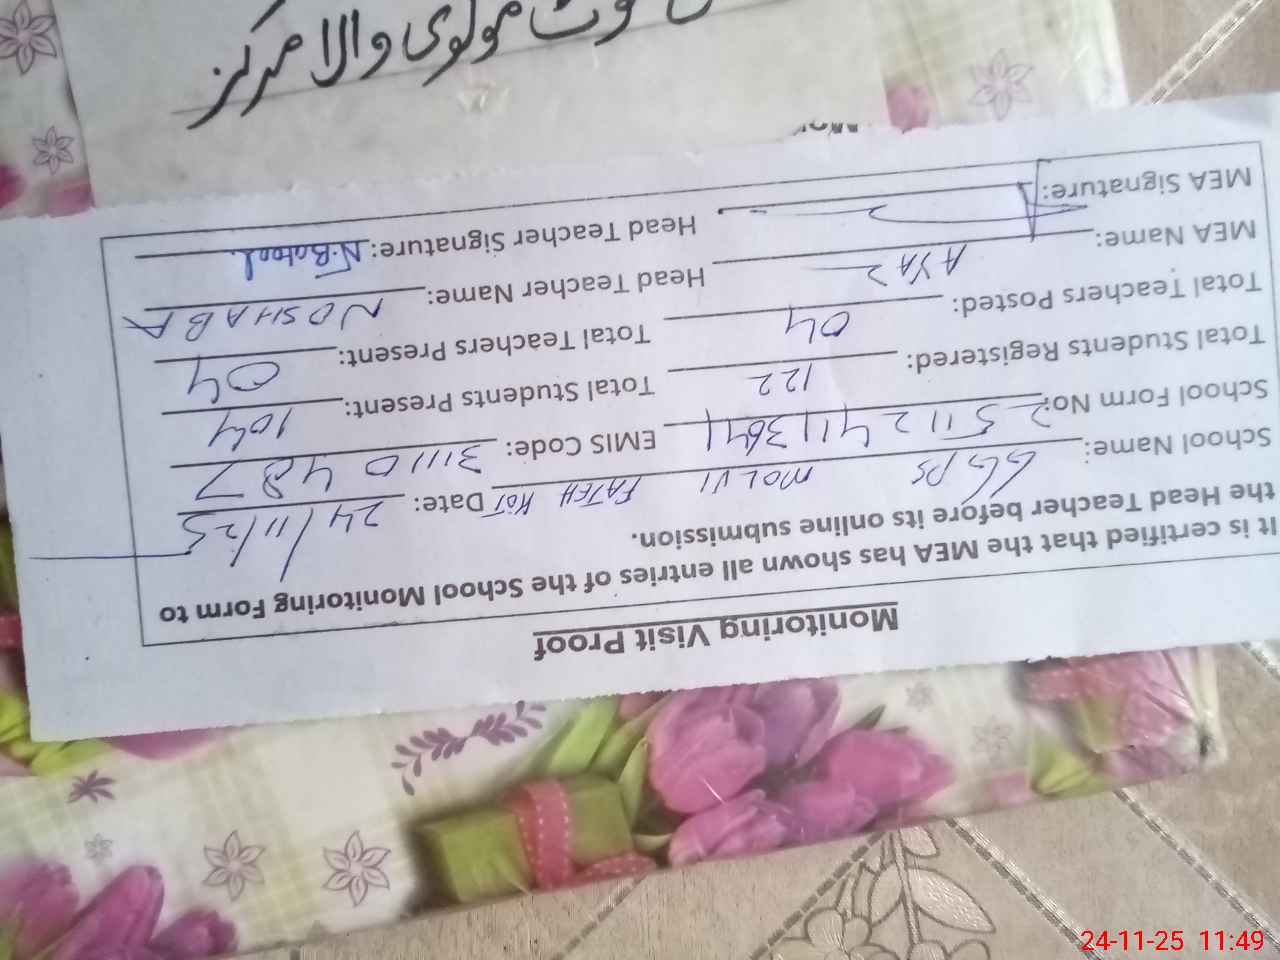 موٹ مولوی والا مرکز
Monitoring Visit Proof
It is certified that the MEA has shown all entries of the School Monitoring Form to
the Head Teacher before its online submission.
School Name: GGPS MOLVI FATEH KOT Date: 24/11/25
School Form No: 25112411364 EMIS Code: 31110487
Total Students Registered: 122 Total Students Present: 104
Total Teachers Posted: 04 Total Teachers Present: 04
MEA Name: AYAZ Head Teacher Name: NOSHABA
MEA Signature: Head Teacher Signature: N.Batool.
24-11-25 11:49